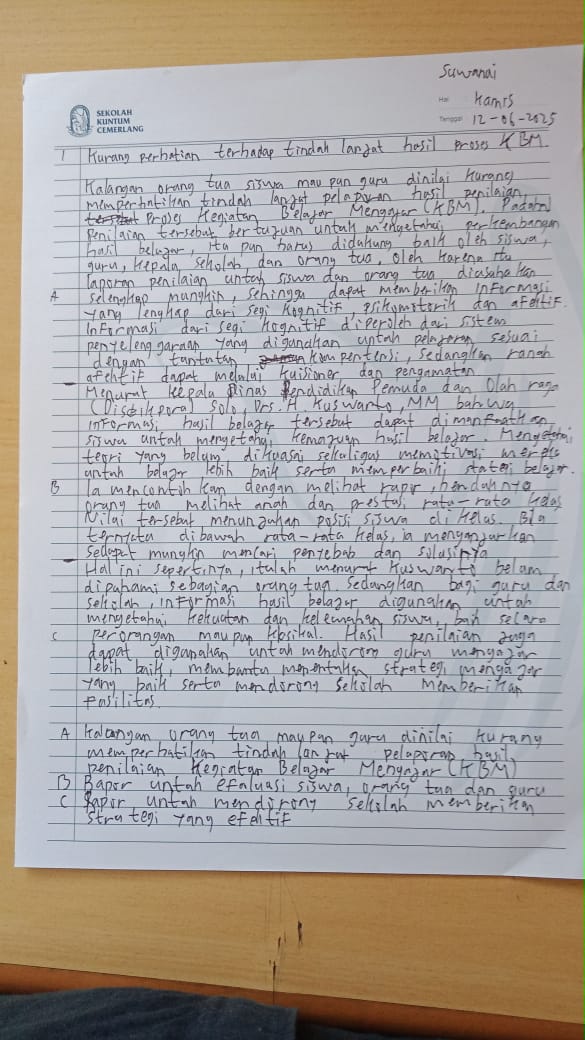 Suwandi
SEKOLAH
KUNTUM
CEMERLANG
Hal Kamis
Tanggal 12-06-2025
1 Kurang perhatian terhadap tindah lanjut hasil proses KBM.
Kalangan orang tua siswa mau pun guru dinilai kurang
memperhatikan tindah lanjut pelaporan hasil penilaian
Proses Kegiatan Belajar Mengajar (KBM). Padahal
Penilaian tersebut bertujuan untuh mengetahui perkembangan
hasil belajar, itu pun harus didukung baik oleh siswa,
guru, kepala sekolah, dan orang tua, oleh karena itu
laporan penilaian untuh siswa dan orang tua diusahakan
A selengkap mungkin, sehingga dapat memberikan informasi
yang lengkap dari segi kognitif, psikomotorik dan afektif.
Informasi dari segi kognitif diperoleh dari sistem
penyelenggaraan yang digunakan untuh pelajaran sesuai
dengan tuntutan kompentensi, sedangkan ranah
afehtif dapat melalui kuisioner dan pengamatan
- Menurut kepala Dinas Pendidikan Pemuda dan Olah raga
(Disdikpora) Solo, Drs. H. Kuswanto, MM bahwa
informasi hasil belajar tersebut dapat dimanfaatkan
siswa untuh mengetahui kemajuan hasil belajar. Mengetahui
teori yang belum dikuasai sekaligus memotivasi mereka
untuh belajar lebih baik serta memperbaihi stategi belajar.
B Ia mencontohkan dengan melihat rapor, hendaknya
orang tua melihat anah dan prestasi rata-rata kelas
Nilai tersebut menunjukan posisi siswa di kelas. Bila
ternyata dibawah rata-rata kelas, ia menganjurkan
sedapat mungkin mencari penyebab dan solusinya
- Hal ini sepertinya, itulah menurut kuswanto belum
dipahami sebagian orang tua. Sedangkan bagi guru dan
sekolah, informasi hasil belajar digunakan untuh
mengetahui kekuatan dan kelemahan siswa, baik secara
C perorangan maupun klosikal. Hasil penilaian juga
dapat digunakan untuh mendorong guru mengajar
lebih baik, membantu menentukan strategi mengajar
yang baik serta mendorong sekolah memberikan
pasilitas.
A kalangan orang tua maupun guru dinilai kurang
memperhatikan tindah lanjut pelaporan hasil
penilaian Kegiatan Belajar Mengajar (KBM)
B Rapor untuh efaluasi siswa, orang tua dan guru
C Rapor untuh mendorong sekolah memberikan
strategi yang efehtif